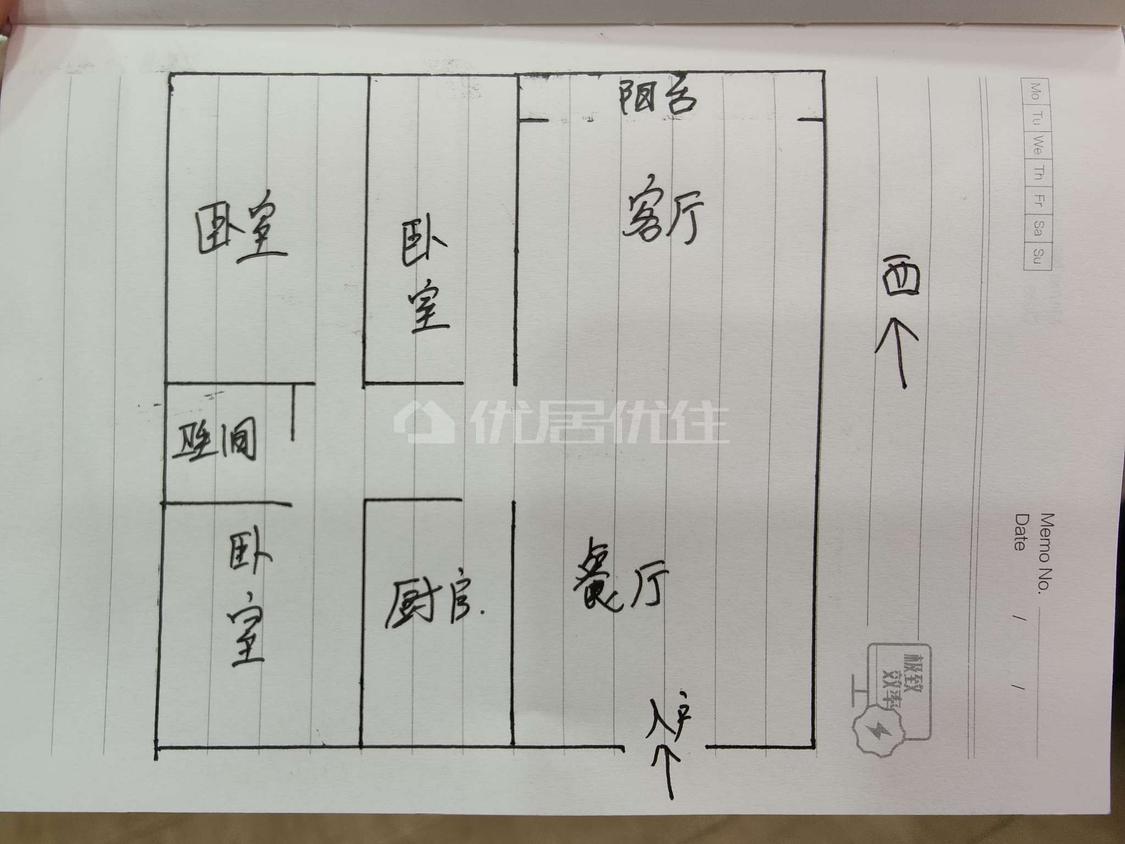 阳台
卧室
卧
室
客厅
西
Mo Tu We Th Fr Sa Su
优居优住
卫生间
卧
室
厨官.
餐厅
入户
Memo No.
Date / /
极致
效率